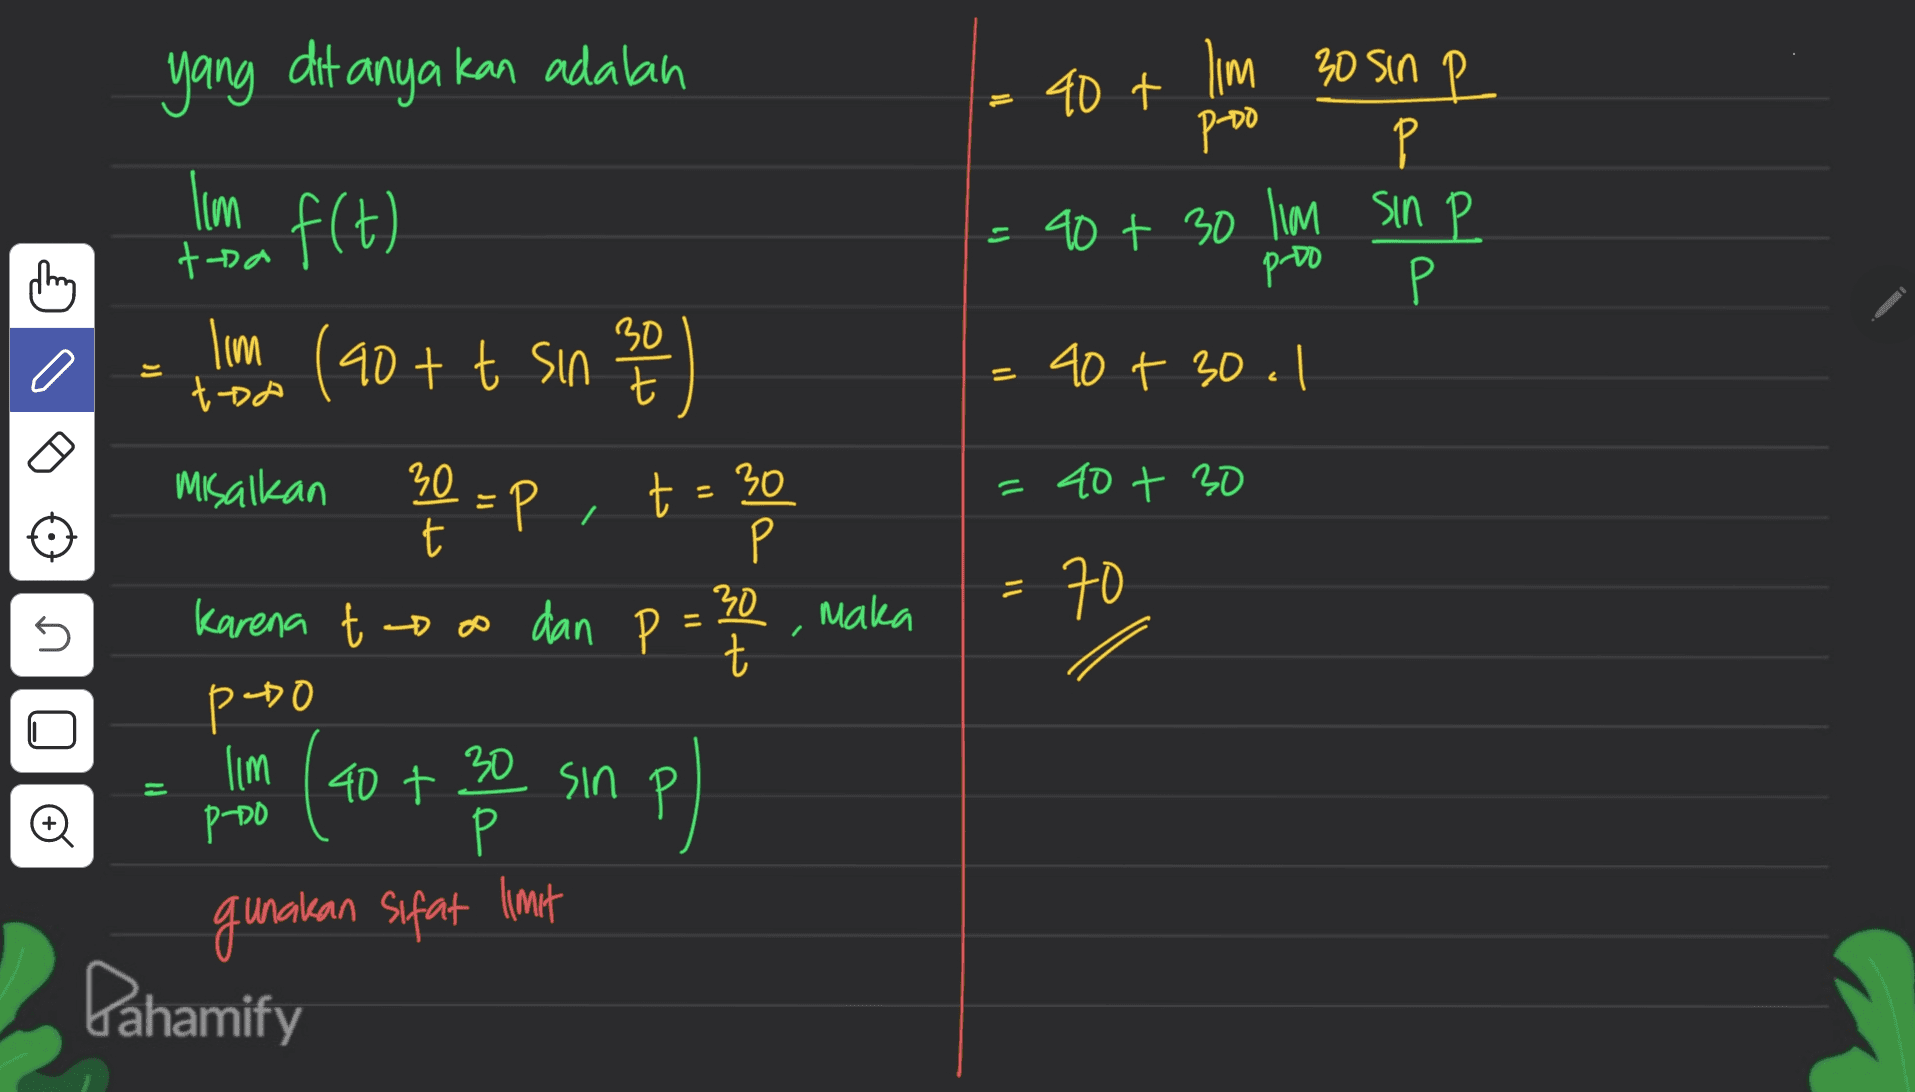 yang ditanyakan adalah
lim t→∞ f(t)
= lim t→∞ (40 + t sin 30/t)
misalkan 30/t = p , t = 30/p
karena t → ∞ dan p = 30/t , maka
p → 0
= lim p→0 (40 + 30/p sin p)
gunakan sifat limit
= 40 + lim p→0 30 sin p / p
= 40 + 30 lim p→0 sin p / p
= 40 + 30 . 1
= 40 + 30
= 70
Pahamify